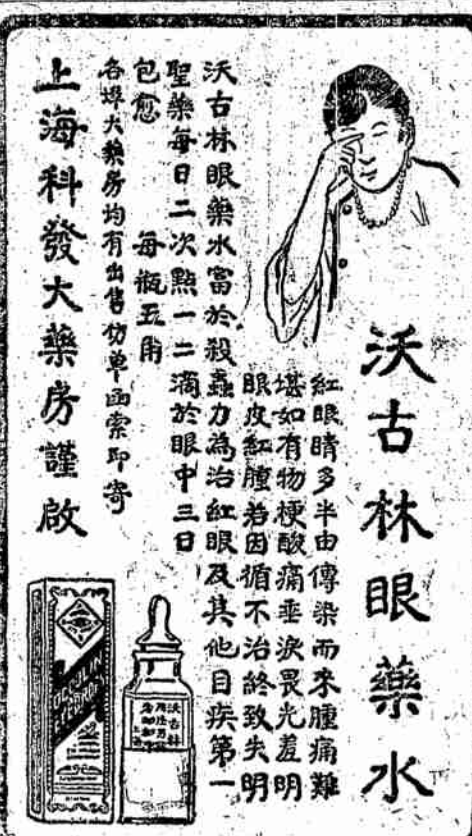 沃古林眼藥水
紅眼睛多半由傳染而來腫痛難
堪如有物梗酸痛垂淚畏光羞明
眼皮紅腫若因循不治終致失明
沃古林眼藥水富於殺蟲力為治紅眼及其他目疾第一
聖藥每日二次點一二滴於眼中三日
包愈 每瓶五角
各埠大藥房均有出售仿單函索即寄
上海科發大藥房謹啟
OCCULIN
EYEDROPS
沃古林